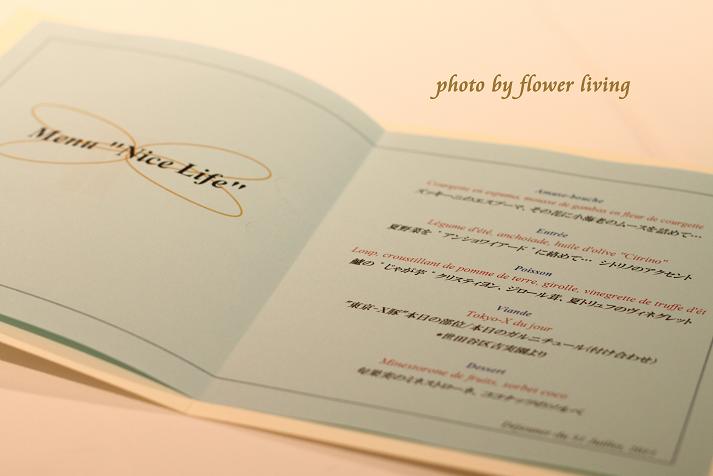 photo by flower living
Menu "Nice Life"
Amuse-bouche
Courgette en espuma, mousse de gambas en fleur de courgette
ズッキーニのエスプーマ、その花に小海老のムースを詰めて…
Entrée
Légume d'été, anchoiade, huile d'olive "Citrino"
夏野菜を“アンショワイアード”に絡めて… シトリノのアクセント
Poisson
Loup, croustillant de pomme de terre, girolle, vinegrette de truffe d'ét
鱸の“じゃが芋”クリスティヨン、ジロール茸、夏トリュフのヴィネグレット
Viande
Tokyo-X du jour
"東京-X豚"本日の部位/本日のガルニチュール(付け合わせ)
●世田谷区吉実園より
Dessert
Minestorone de fruits, sorbet coco
旬果実のミネストローネ、ココナッツのソルベ
Déjeuner du 31 Juillet,